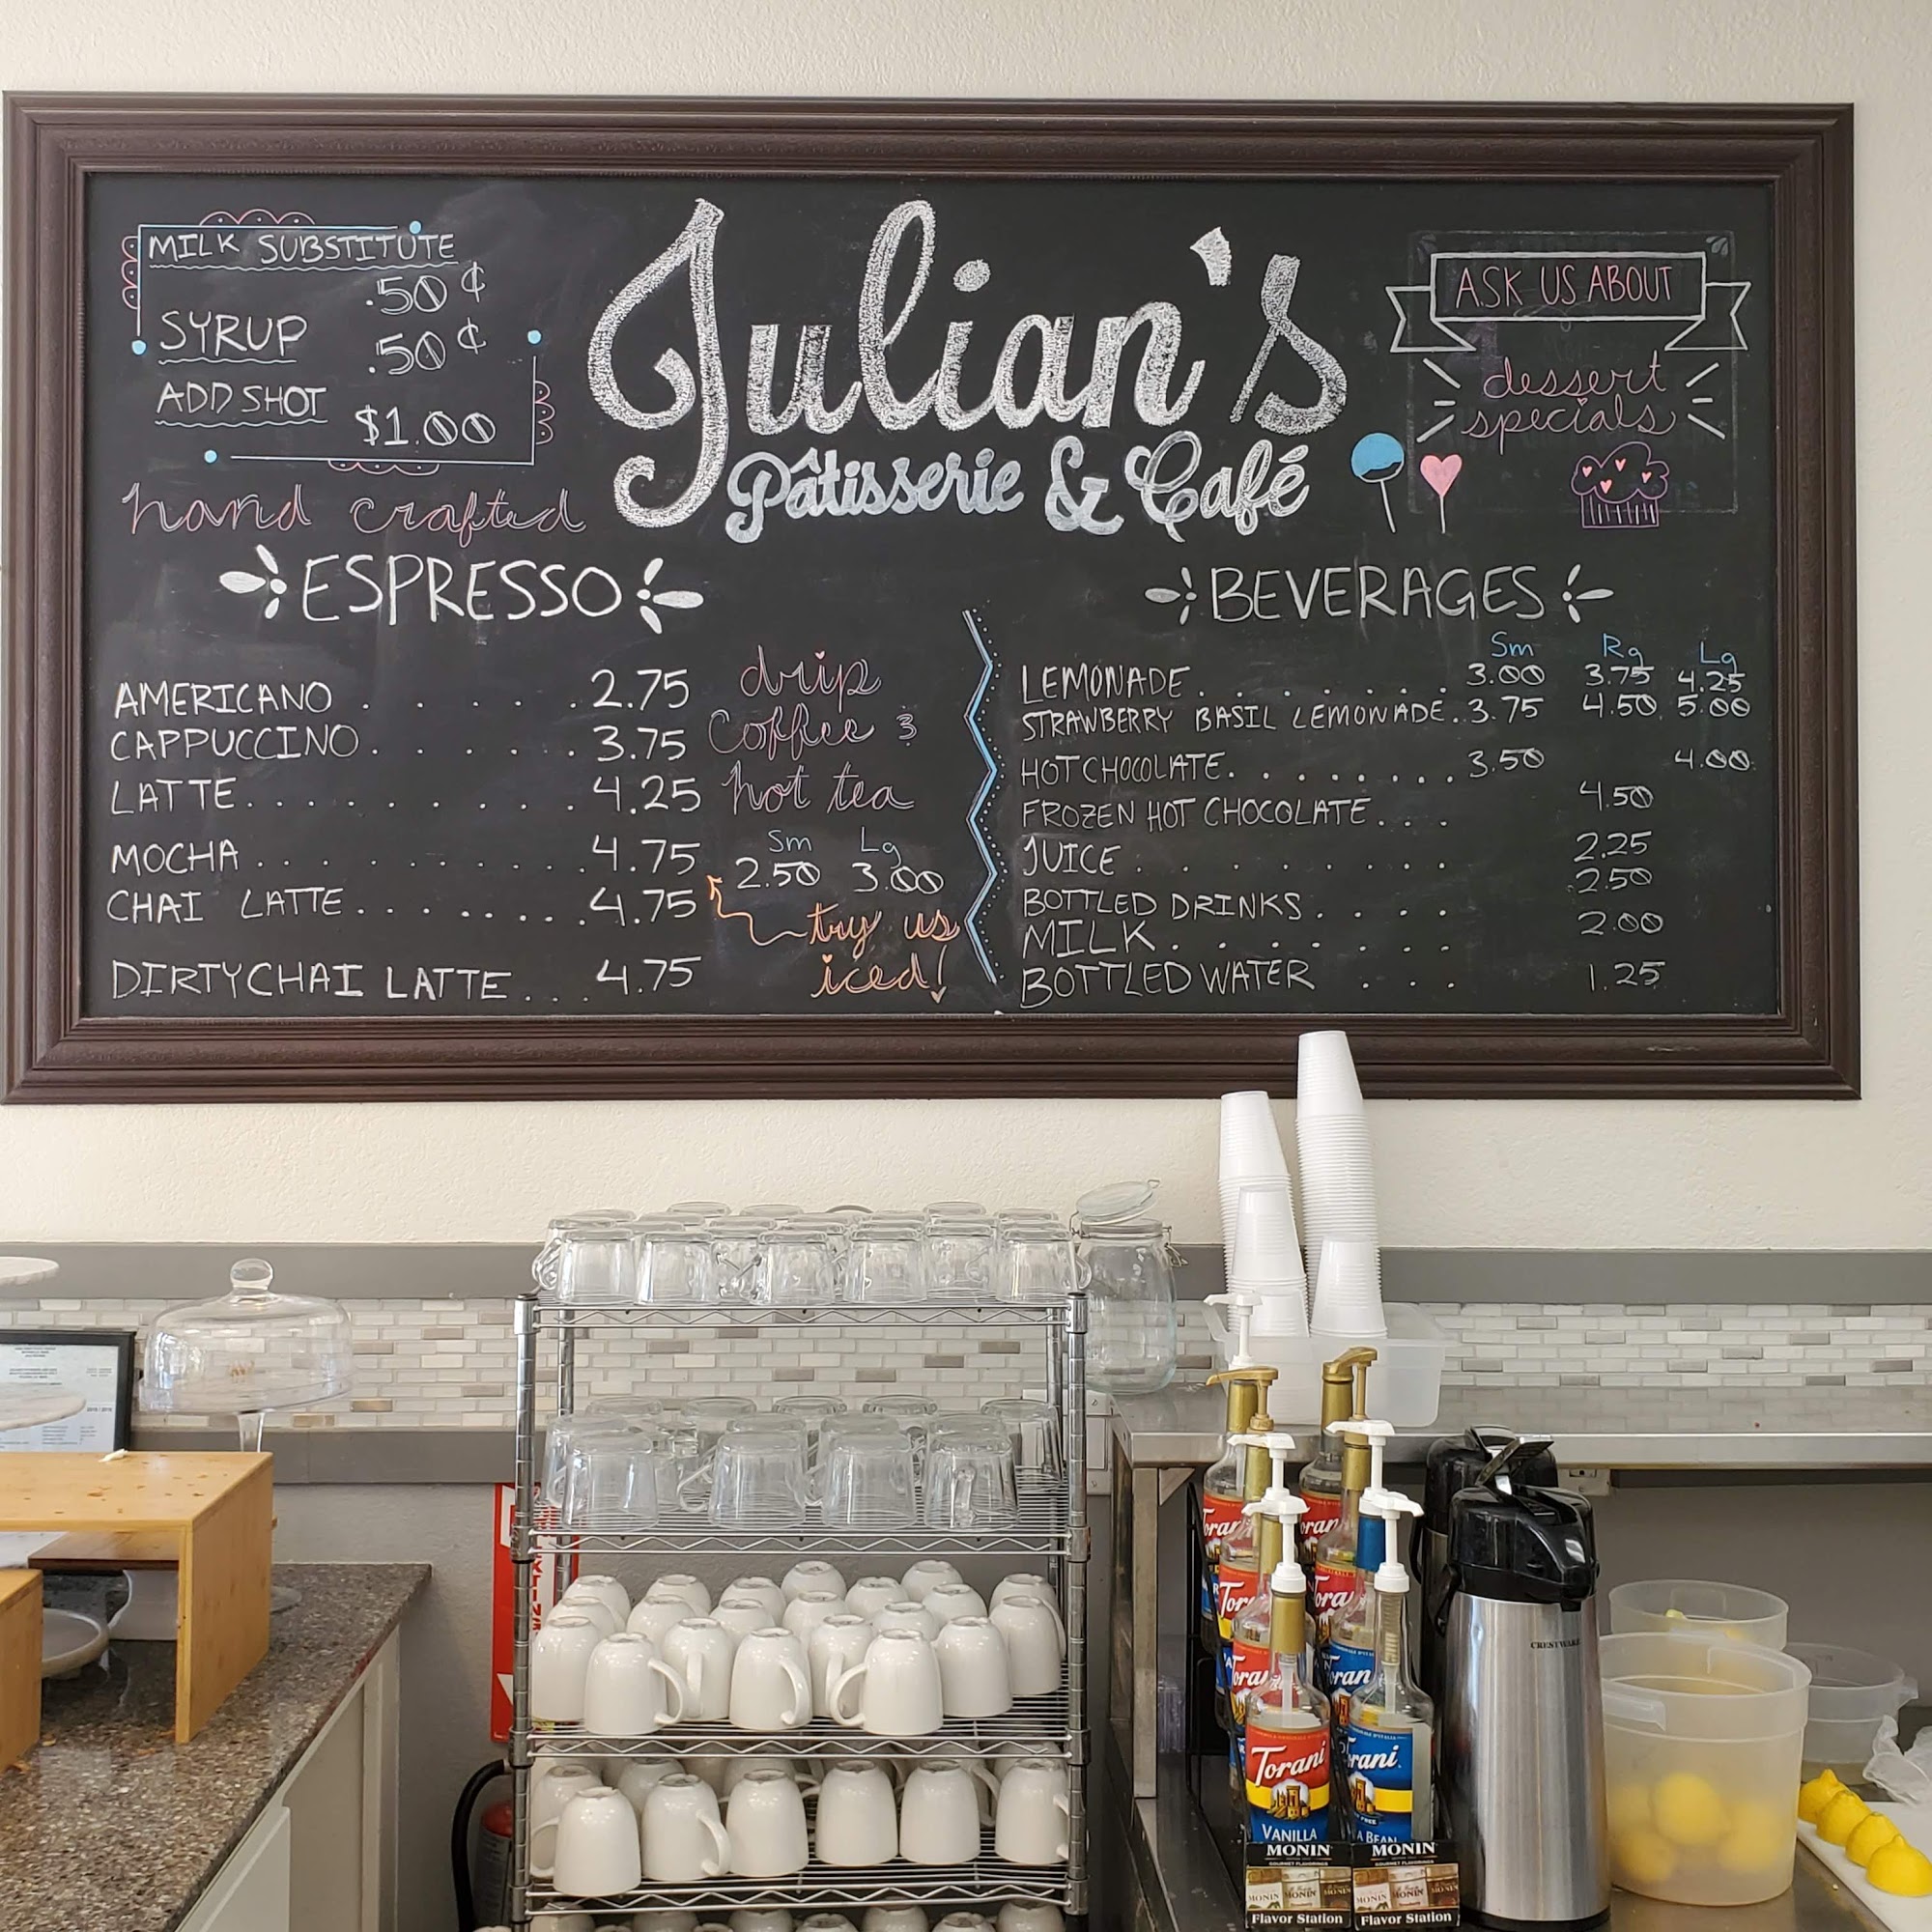 MILK SUBSTITUTE
.50¢
SYRUP
.50¢
ADD SHOT
$1.00
Julian's
Pâtisserie & Café
ASK US ABOUT
dessert
specials
hand crafted
ESPRESSO
AMERICANO . . . . . 2.75
CAPPUCCINO . . . . . . 3.75
LATTE . . . . . . . . . . 4.25
MOCHA . . . . . . . . . 4.75
CHAI LATTE . . . . . . . . 4.75
DIRTY CHAI LATTE . . . 4.75
drip
coffee &
hot tea
Sm Lg
2.50 3.00
try us
iced!
BEVERAGES
Sm Rg Lg
LEMONADE . . . . . . . . 3.00 3.75 4.25
STRAWBERRY BASIL LEMONADE . 3.75 4.50 5.00
HOT CHOCOLATE . . . . . . . . 3.50 4.00
FROZEN HOT CHOCOLATE . . . 4.50
JUICE . . . . . . . 2.25
BOTTLED DRINKS . . . . 2.50
MILK . . . . . . . 2.00
BOTTLED WATER . . . 1.25
CRESTWARE
Torani
VANILLA
MONIN
GOURMET FLAVORINGS
Flavor Station
MONIN
GOURMET FLAVORINGS
Flavor Station